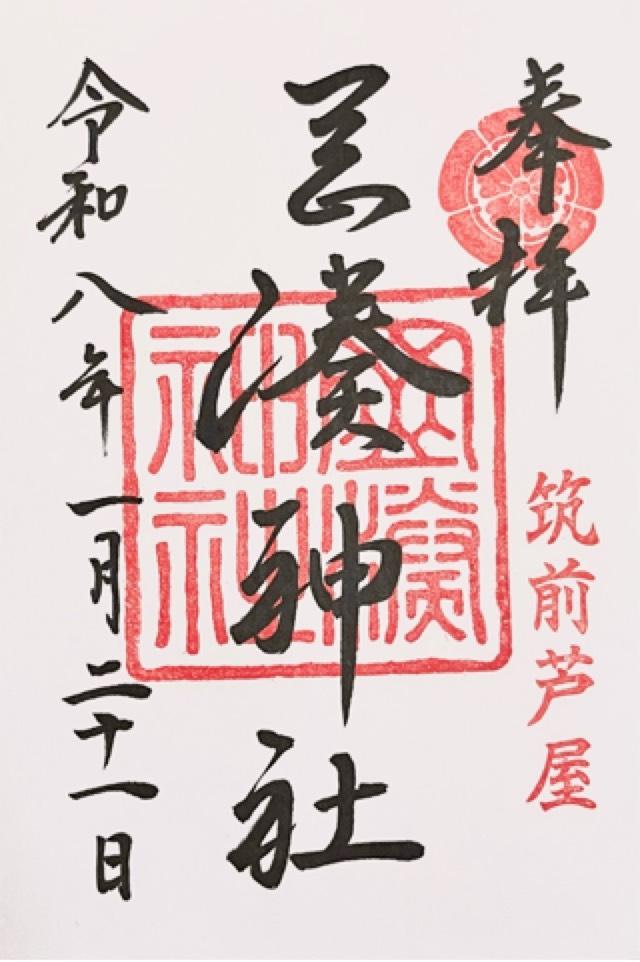 奉拝
筑前芦屋
岡湊神社
岡湊神社
令和八年一月二十一日